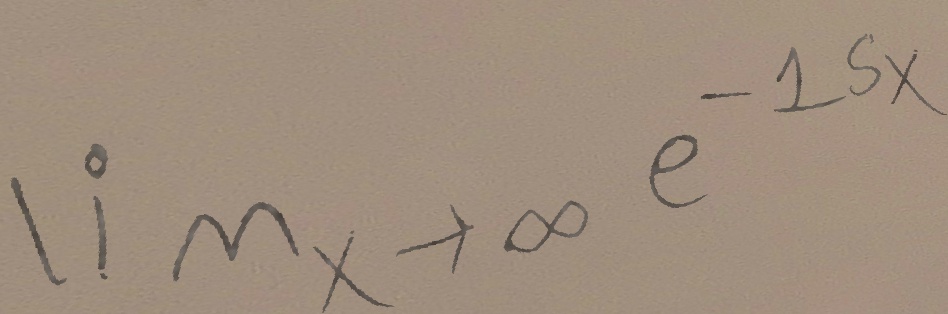 lim x→∞ e^{-15x}